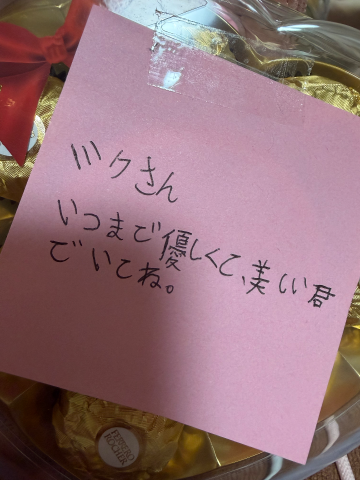 ミクさん
いつまで優しくて、美しい君
でいてね。
FERRERO
ROCHER